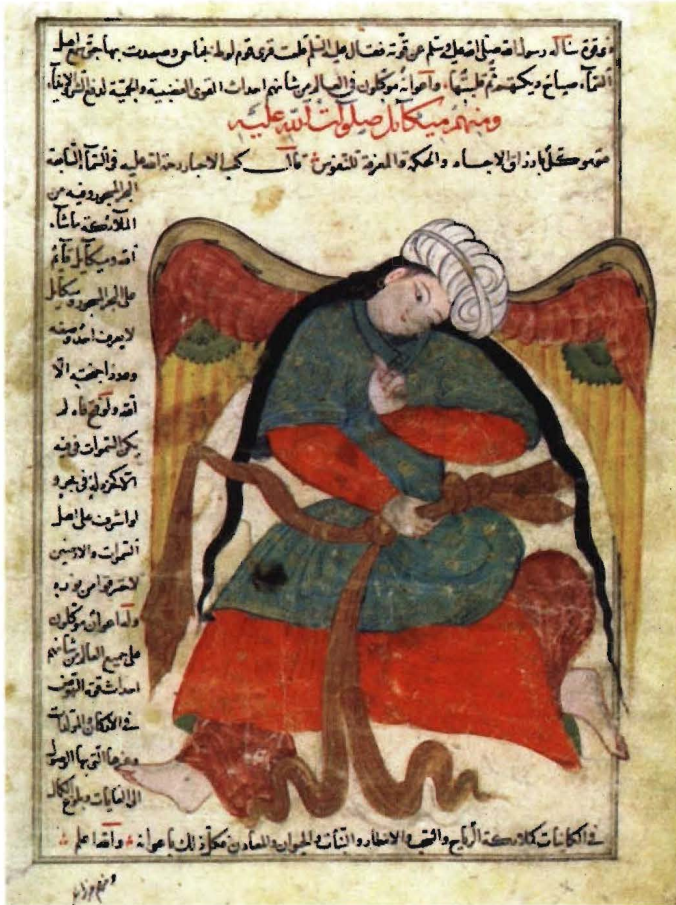 قوته سأله رسول الله صلى الله عليه وسلم عن قوته فقال عليه السلم قلعت قرى قوم لوط بجناحي وصعدت بها حتى سمع اهل
السماء صياح ديكتهم ثم قلبتها واعوانه موكلون في العالم من شانهم احداث القوى الغضبية والحمية لدفع الشر والايذاء
ومنهم ميكائل صلوات الله عليه
وهو موكل بارزاق الاجساد والحكمة والمعرفة للنفوس قال كعب الاحبار رحمة الله عليه في السماء السابعة
البحر المسجور وفيه من
الملائكة ماشاء
الله وميكائل قائم
على البحر المسجور وميكائل
لا يعرف احد وصفه
وعدد اجنحته الا
الله ولو فتح فاه لم
يكن السموات في فيه
الا كخردلة في بحر و
لو اشرف على اهل
السموات والارضين
لاحترقوا من نوره
وله اعوان موكلون
على جميع العالم من شانهم
احداث قوة النهوض
في الاركان والمولدات
وغيرها التي بها الوصول
الى الغايات وبلوغ الكمال
في الكائنات كملائكة الرياح والسحب والامطار والنبات والحيوان والمعادن فكل ذلك باعوانه والله اعلم